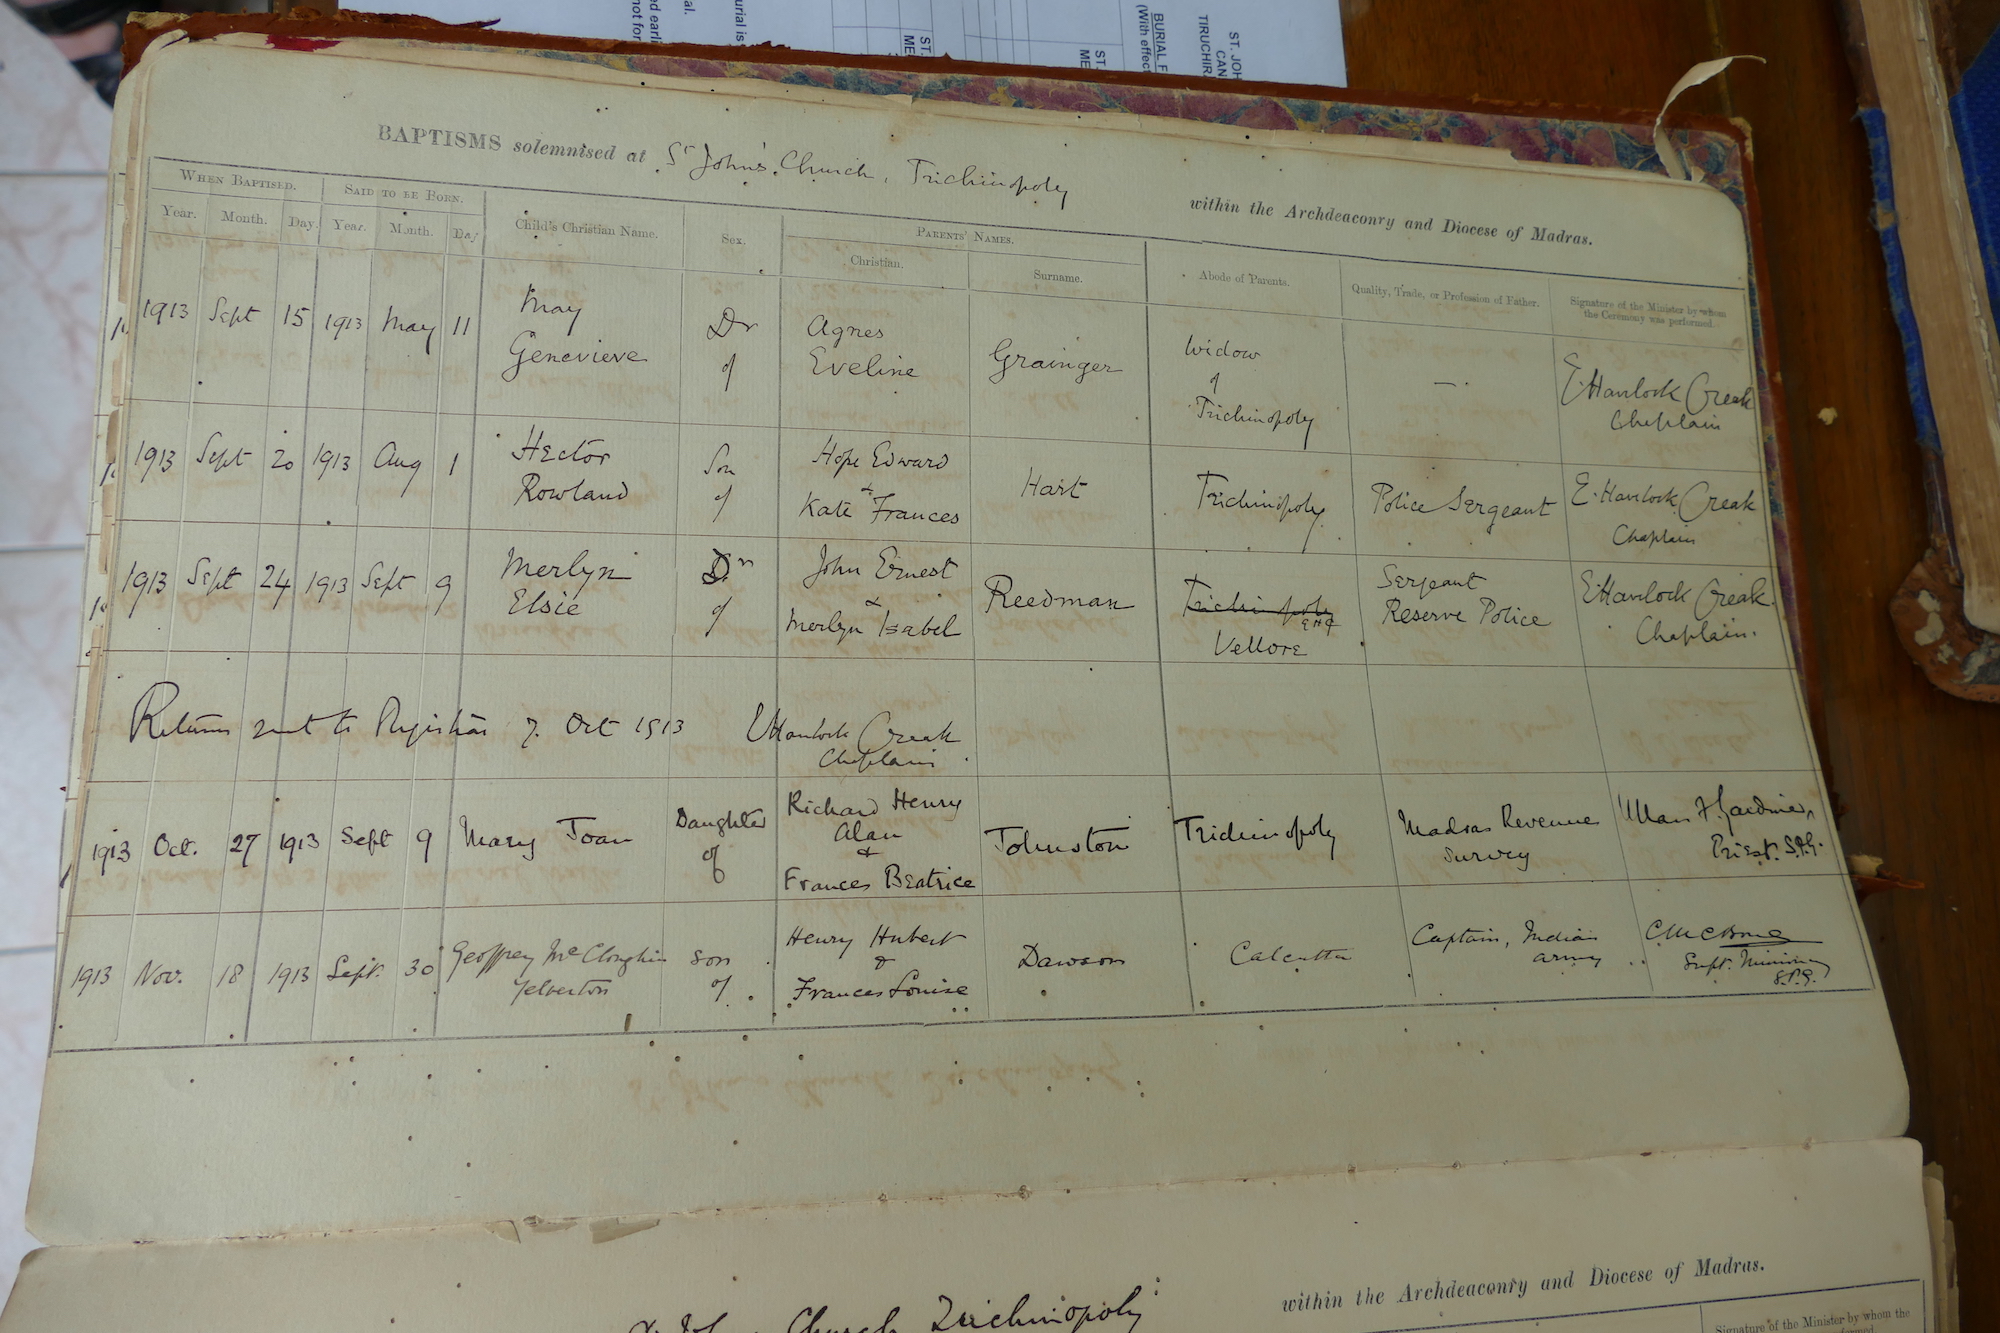 ST. JOH
CAN
TIRUCHIR
BURIAL F
(With effect
ST.
ME
ST.
ME
urial is
al.
ed earli
not for
BAPTISMS solemnised at St John's Church, Trichinopoly within the Archdeaconry and Diocese of Madras.
WHEN BAPTISED. SAID TO BE BORN. PARENTS' NAMES.
Year. Month. Day. Year. Month. Day Child's Christian Name. Sex. Christian. Surname. Abode of Parents. Quality, Trade, or Profession of Father. Signature of the Minister by whom
the Ceremony was performed.
1913 Sept 15 1913 May 11 May Dr Agnes Grainger Widow — E. Havelock Creak
Genevieve of Eveline of Chaplain
Trichinopoly
1913 Sept 20 1913 Aug 1 Hector Son Hope Edward Hart Trichinopoly Police Sergeant E. Havelock Creak
Rowland of & Chaplain
Kate Frances
1913 Sept 24 1913 Sept 9 Merlyn Dr John Ernest Reedman Trichinopoly Sergeant E Havelock Creak
Elsie of & EHC Reserve Police Chaplain.
Merlyn Isabel Vellore
Returns sent to Registrar 7. Oct 1913 E Havelock Creak
Chaplain
1913 Oct. 27 1913 Sept 9 Mary Joan Daughter Richard Henry Johnston Trichinopoly Madras Revenue
of Alan Survey Priest. S.P.G.
&
Frances Beatrice
1913 Nov. 18 1913 Sept. 30 Geoffrey McCloughin son Henry Hubert Dawson Calcutta Captain, Indian
Yelverton of & Army Supt. Missionary
Frances Louise S.P.G.
within the Archdeaconry and Diocese of Madras.
Church Trichinopoly
Signature of the Minister by whom the